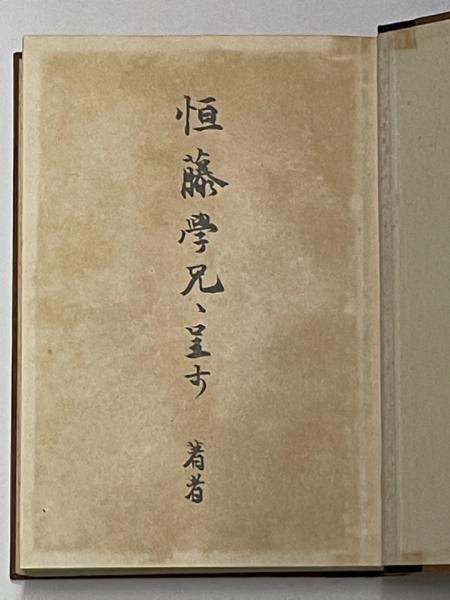 恒藤學兄へ呈す 著者